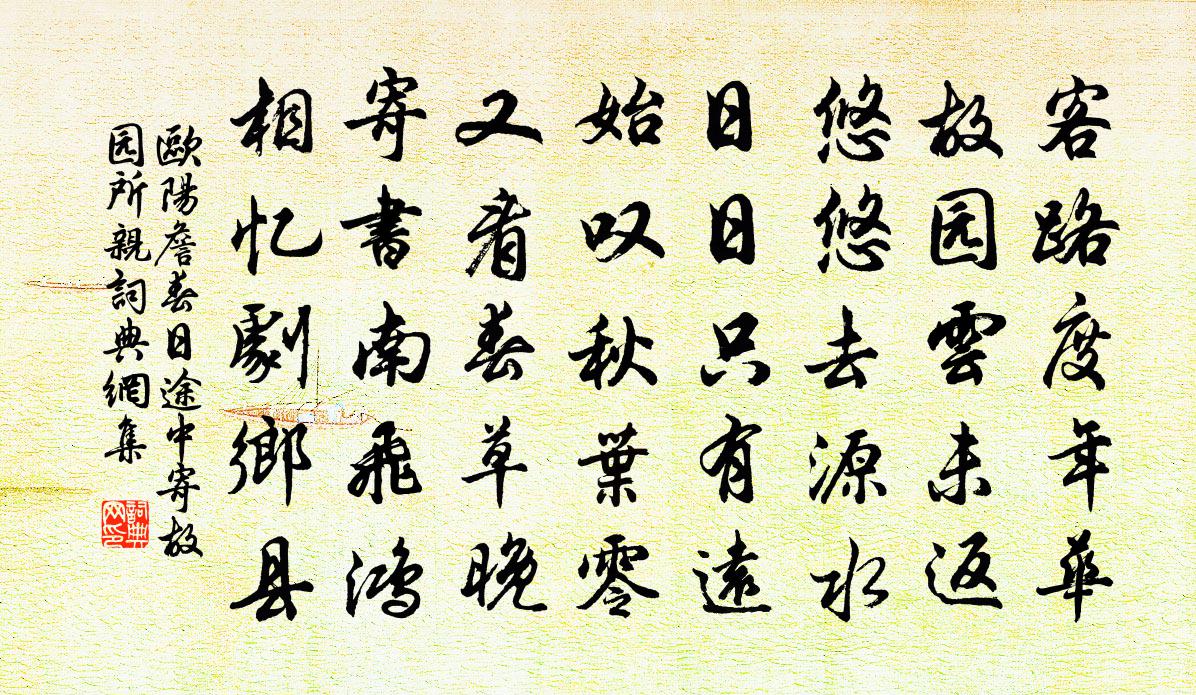 客路度年華
故园雲未返
悠悠去源水
日日只有遠
始叹秋葉零
又看春草晚
寄書南飛鴻
相忆劇鄉县
歐陽詹春日途中寄故
园所親詞典網集
詞典
网印